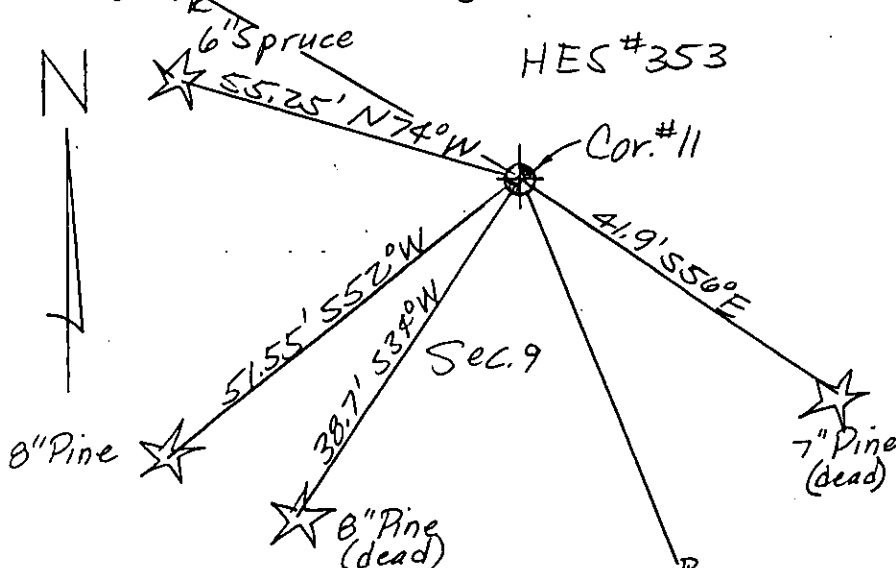 6" Spruce
HES #353
N
55.25' N74°W
Cor. #11
41.9' S56°E
51.55' S52°W
38.7' S34°W
Sec. 9
8" Pine
7" Pine
(dead)
8" Pine
(dead)